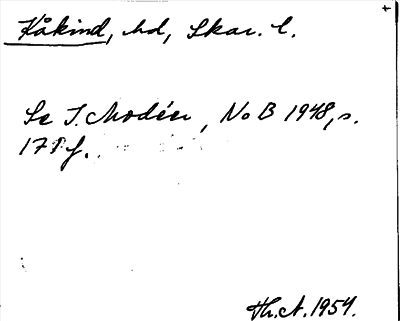 Kåkind, hd, Skar. l.
Se I. Modéer, NoB 1948, s.
178 f.
Th. A. 1954.